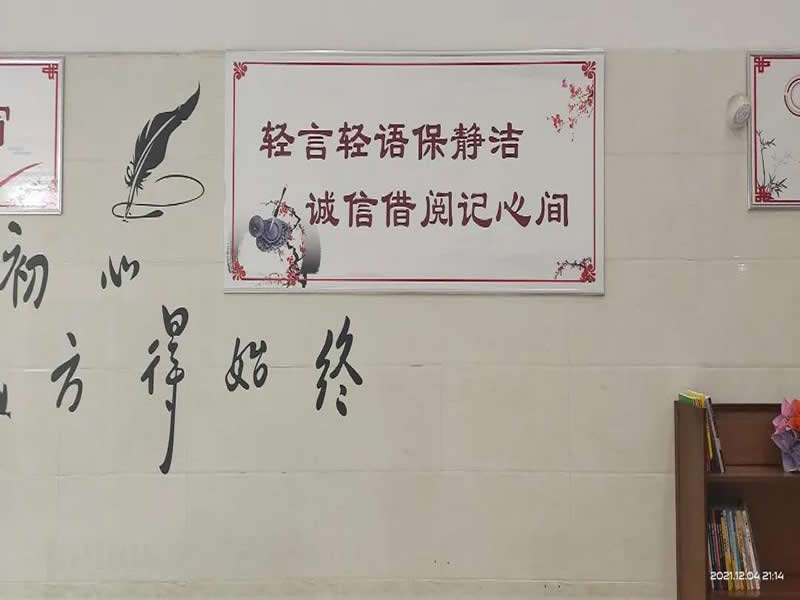 轻言轻语保静洁
诚信借阅记心间
初心
方得始终
2021.12.04 21:14